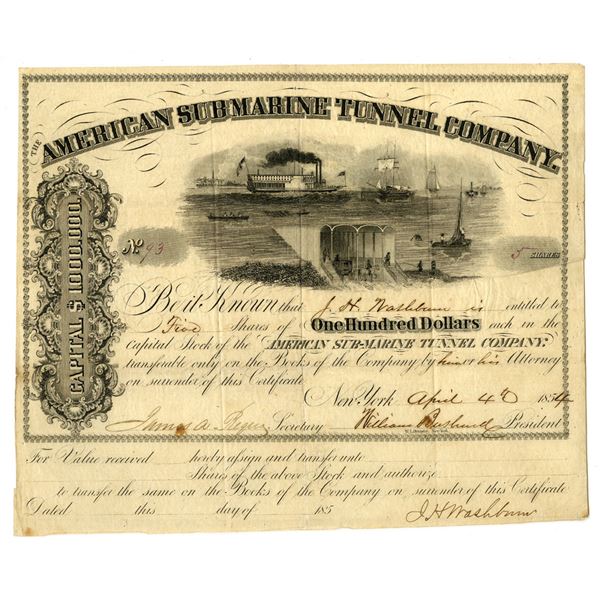 THE AMERICAN SUBMARINE TUNNEL COMPANY.
CAPITAL $1,000,000.
No 93
5 SHARES
Be it Known that J. H. Washburn is entitled to
Five Shares of One Hundred Dollars each in the
Capital Stock of the "AMERICAN SUB-MARINE TUNNEL COMPANY."
transferable only on the Books of the Company by him or his Attorney
on surrender of this Certificate
New York April 4th 1854
James A. Secretary William President
For Value received hereby assign and transfer unto
Shares of the above Stock and authorize
to transfer the same on the Books of the Company on surrender of this Certificate
Dated this day of 185
J. H. Washburn